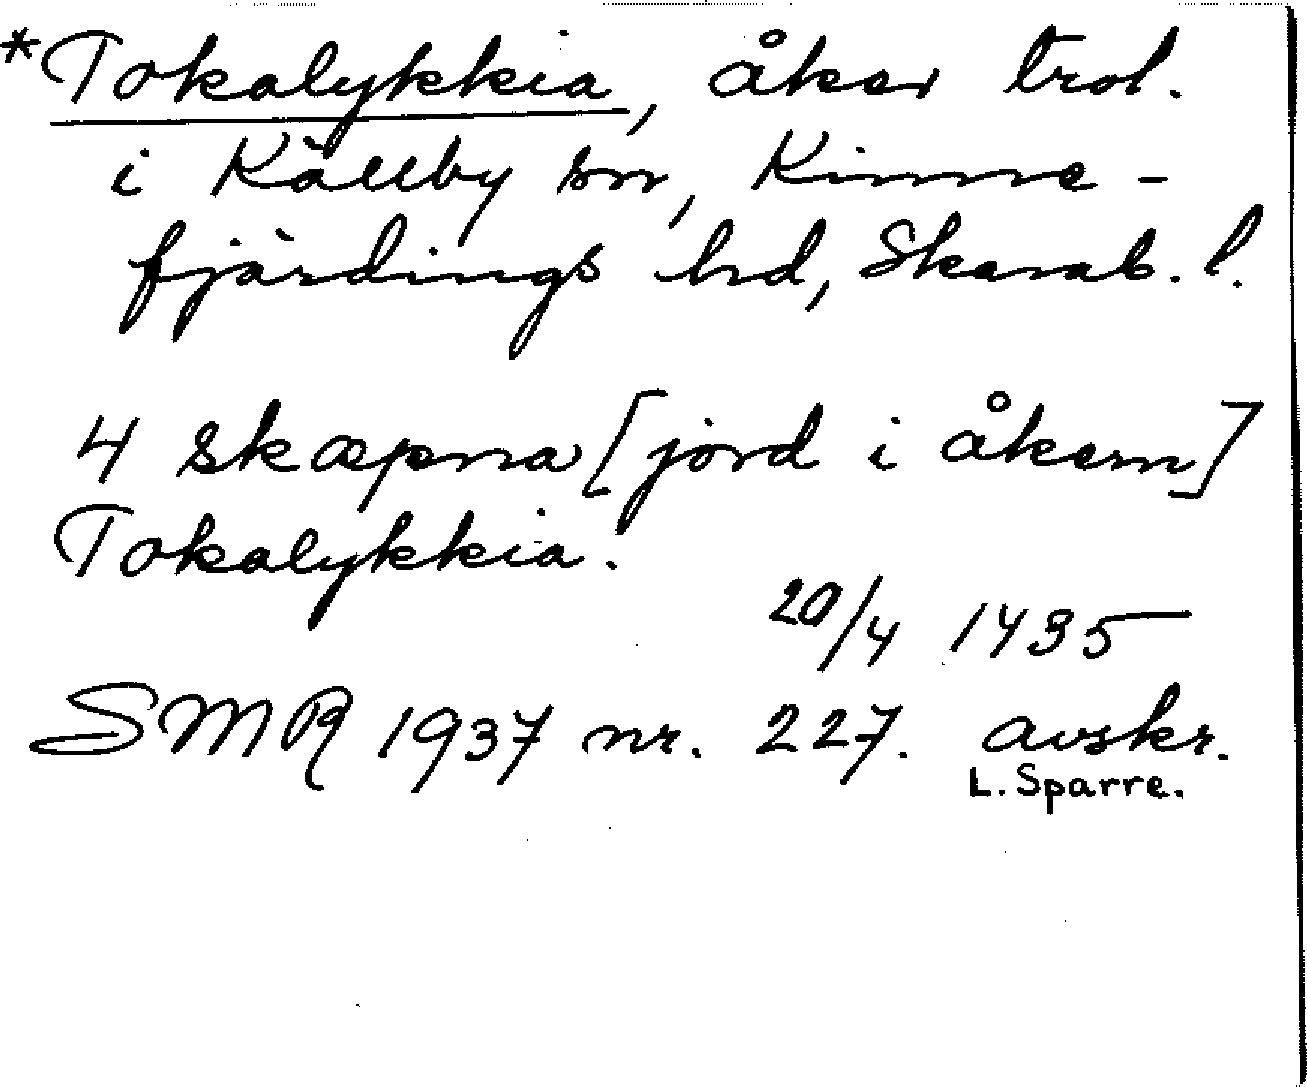 *Tokalykkia, åker trol.
i Källby sn, Kinne-
fjärdings hd, Skarab. l.
4 skæpna [jord i åkern]
Tokalykkia.
20/4 1435
SMR 1937 nr. 227. avskr.
L. Sparre.